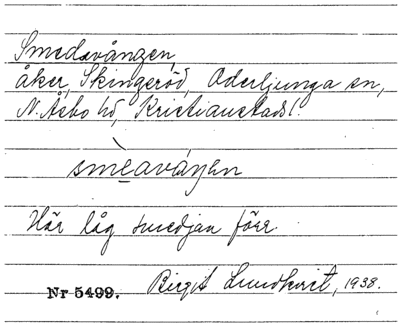 Smedsvången,
åker, Skingeröd, Oderljunga sn,
N. Åsbo hd, Kristianstads l.
smèaváŋen
Här låg smedjan förr.
Nr 5499. Birgit Lundkvist, 1938.